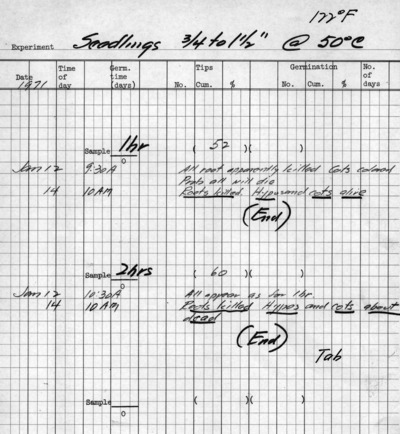 122°F
Experiment Seedlings 3/4 to 1½" @ 50°C
Date 1971 Time of day Germ. time (days) Tips No. Cum. % Germination No. Cum. % No. of days
Sample 1hr ( 52 )( )
0
Jan 12 9:30A All root apparently killed Cots colored
Prob all will die
14 10AM Roots killed. Hypos and cots alive
(End)
Sample 2hrs ( 60 )( )
0
Jan 12 10:30A All appear as for 1hr
14 10AM Roots killed Hypos and cots about
dead
(End)
Tab
Sample ( )( )
0